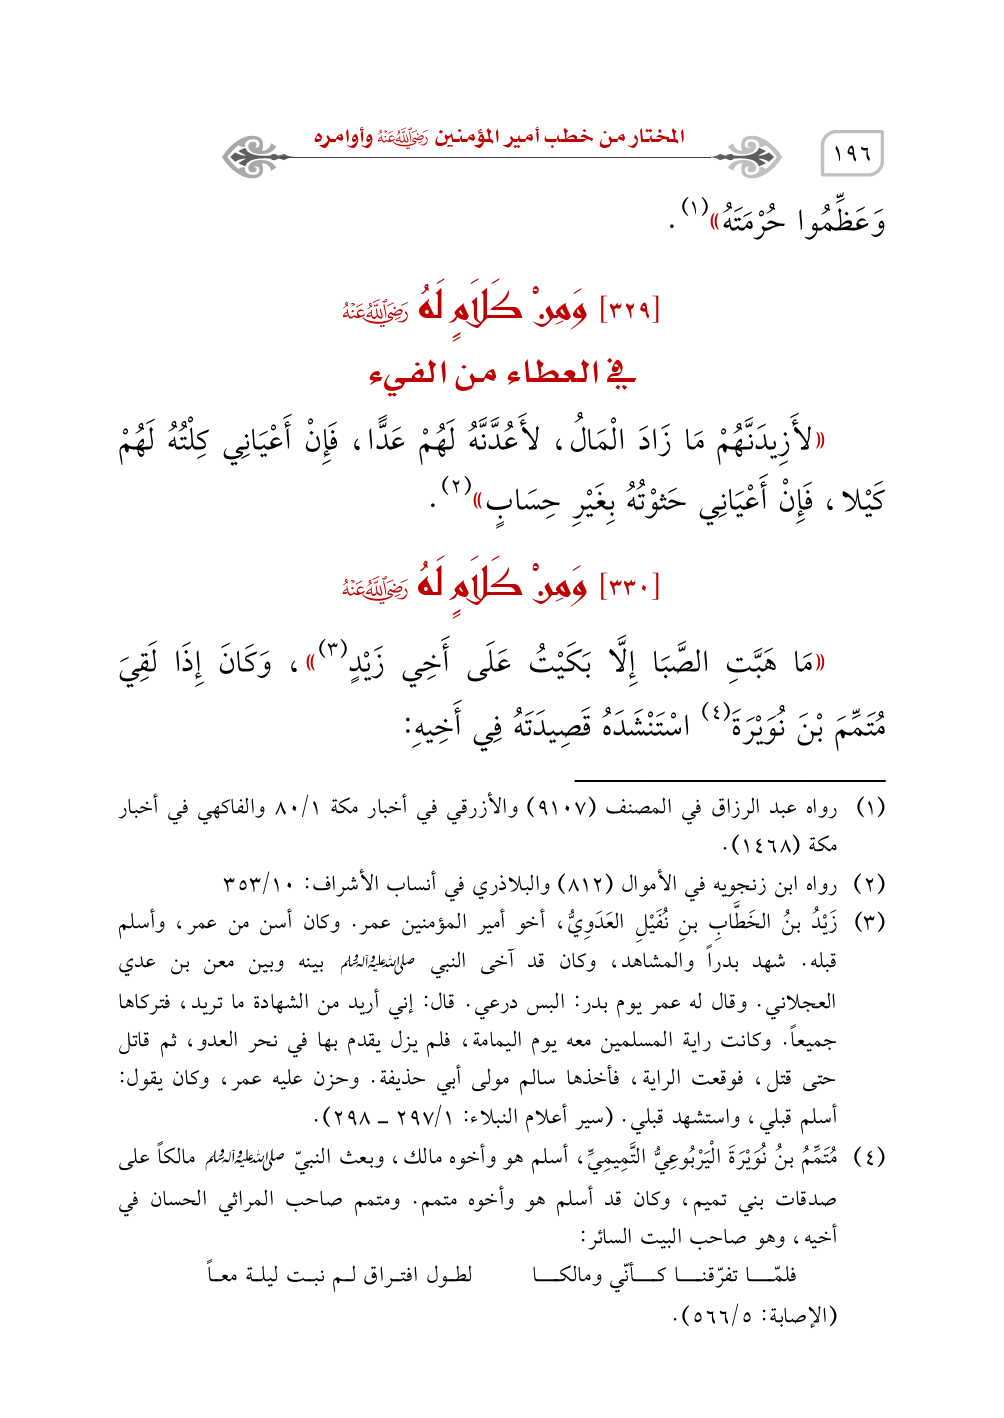 ١٩٦
المختار من خطب أمير المؤمنين رَضِيَ اللَّهُ عَنْهُ وأوامره
وَعَظِّمُوا حُرْمَتَهُ»(١).
[٣٢٩] وَمِنْ كَلَامٍ لَهُ رَضِيَ اللَّهُ عَنْهُ
في العطاء من الفيء
«لأَزِيدَنَّهُمْ مَا زَادَ الْمَالُ، لأَعُدَّنَّهُ لَهُمْ عَدًّا، فَإِنْ أَعْيَانِي كِلْتُهُ لَهُمْ
كَيْلا، فَإِنْ أَعْيَانِي حَثوْتُهُ بِغَيْرِ حِسَابٍ»(٢).
[٣٣٠] وَمِنْ كَلَامٍ لَهُ رَضِيَ اللَّهُ عَنْهُ
«مَا هَبَّتِ الصَّبَا إِلَّا بَكَيْتُ عَلَى أَخِي زَيْدٍ(٣)»، وَكَانَ إِذَا لَقِيَ
مُتَمِّمَ بْنَ نُوَيْرَةَ(٤) اسْتَنْشَدَهُ قَصِيدَتَهُ فِي أَخِيهِ:
(١) رواه عبد الرزاق في المصنف (٩١٠٧) والأزرقي في أخبار مكة ٨٠/١ والفاكهي في أخبار
مكة (١٤٦٨).
(٢) رواه ابن زنجويه في الأموال (٨١٢) والبلاذري في أنساب الأشراف: ٣٥٣/١٠
(٣) زَيْدُ بنُ الخَطَّابِ بنِ نُفَيْلِ العَدَوِيُّ، أخو أمير المؤمنين عمر. وكان أسن من عمر، وأسلم
قبله. شهد بدراً والمشاهد، وكان قد آخى النبي صلى الله عليه وآله وسلم بينه وبين معن بن عدي
العجلاني. وقال له عمر يوم بدر: البس درعي. قال: إني أريد من الشهادة ما تريد، فتركاها
جميعاً. وكانت راية المسلمين معه يوم اليمامة، فلم يزل يقدم بها في نحر العدو، ثم قاتل
حتى قتل، فوقعت الراية، فأخذها سالم مولى أبي حذيفة. وحزن عليه عمر، وكان يقول:
أسلم قبلي، واستشهد قبلي. (سير أعلام النبلاء: ٢٩٧/١ ـ ٢٩٨).
(٤) مُتَمِّمُ بنُ نُوَيْرَةَ الْيَرْبُوعِيُّ التَّمِيمِيِّ، أسلم هو وأخوه مالك، وبعث النبيّ صلى الله عليه وآله وسلم مالكاً على
صدقات بني تميم، وكان قد أسلم هو وأخوه متمم. ومتمم صاحب المراثي الحسان في
أخيه، وهو صاحب البيت السائر:
فلمّـــا تفرّقنـــا كـــأنّي ومالكـــا لطـول افتـراق لـم نبـت ليلـة معـاً
(الإصابة: ٥٦٦/٥).